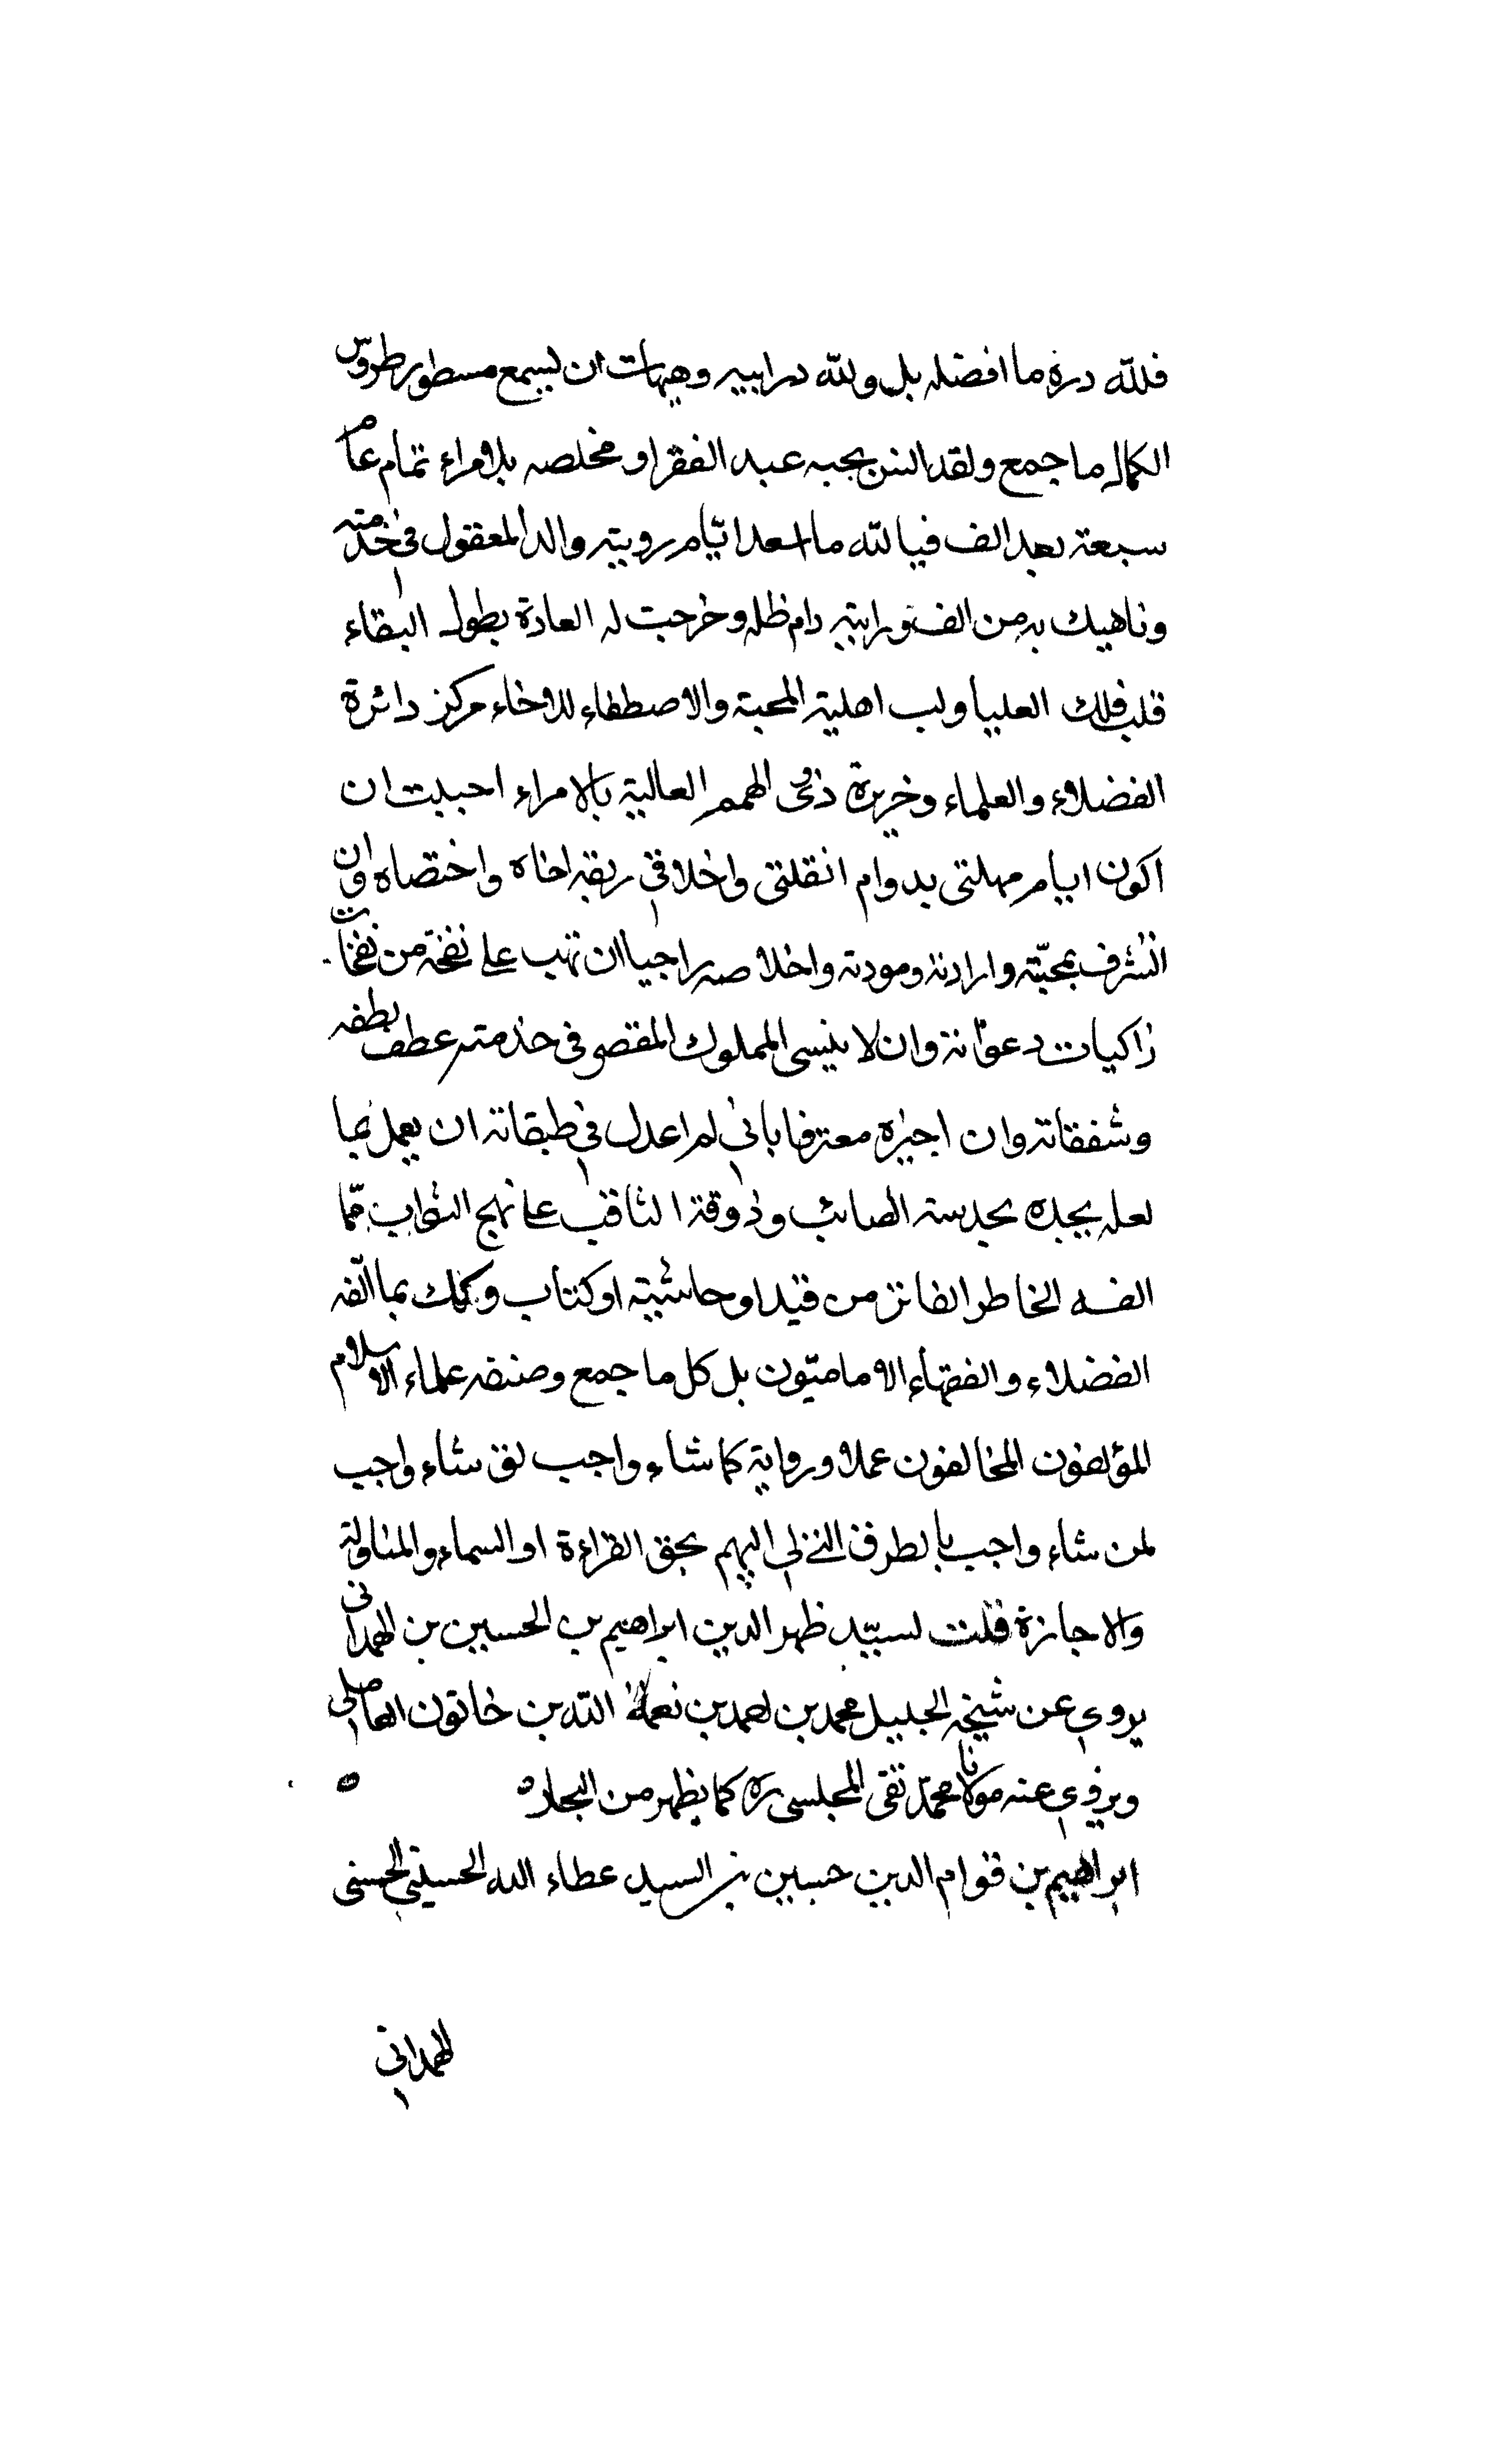 فللّه درّه ما افضله بل ولله در ابيه وهيهات ان ليسمع مسطور طروس
الكمال ما جمع ولقد بحبه عبد الفقرا و مخلصه بلا مراء تمام عام
سبعة بعد الف فيا لله ما اسعد ايّام رويته والد المعقول في خدمته
وناهيك به من الف ورايته دام ظله وخرجت له العادة بطول البقاء
قلب فلك العليا ولب اهلية المحبة والاصطفاء للاخاء مركز دائرة
الفضلاء والعلماء وخريرة ذوى الهمم العالية بالامراء احببت ان
اكون ايام مهلتى بدوام انقلتى واخلا في ربقة اخاه واختصاه وان
اتشرف بمحبّته وارادته ومودته واخلاصه راجيا ان تهب على نفخة من نفخات
زاكيات دعواته وان لا ينسى المملوك المقصر فى خدمته عطف لطفه
وشفقاته وان اجيزه معترفا بانى لم اعدل في طبقاته ان يعمل بما
لعله يجده بحدسه الصائب وذوقه الثاقب على نهج الثواب ممّا
الفه الخاطر الفاتر من قيد او حاشية او كتاب وكذلك بما الّفه
الفضلاء والفقهاء الاماميّون بل كل ما جمع وصنفه علماء الاسلام
المؤلفون المخالفون عملا ورواية كما شاء واجب لمن شاء واجب
لمن شاء واجب بالطرق التى لى اليهم بحق القراءة او السماء والمناولة
والاجازة قلت لسيّد ظهر الدين ابراهيم بن الحسين بن الهمدانى
يروى عن شيخه الجليل محمد بن احمد بن نعمة الله بن خاتون العاملى
ويروى عنه مولانا محمّد تقى المجلسى ره كما يظهر من البحار ه ه
ابراهيم بن قوام الدين حسين بن السيد عطاء الله الحسينى الحسنى
الهمدانى